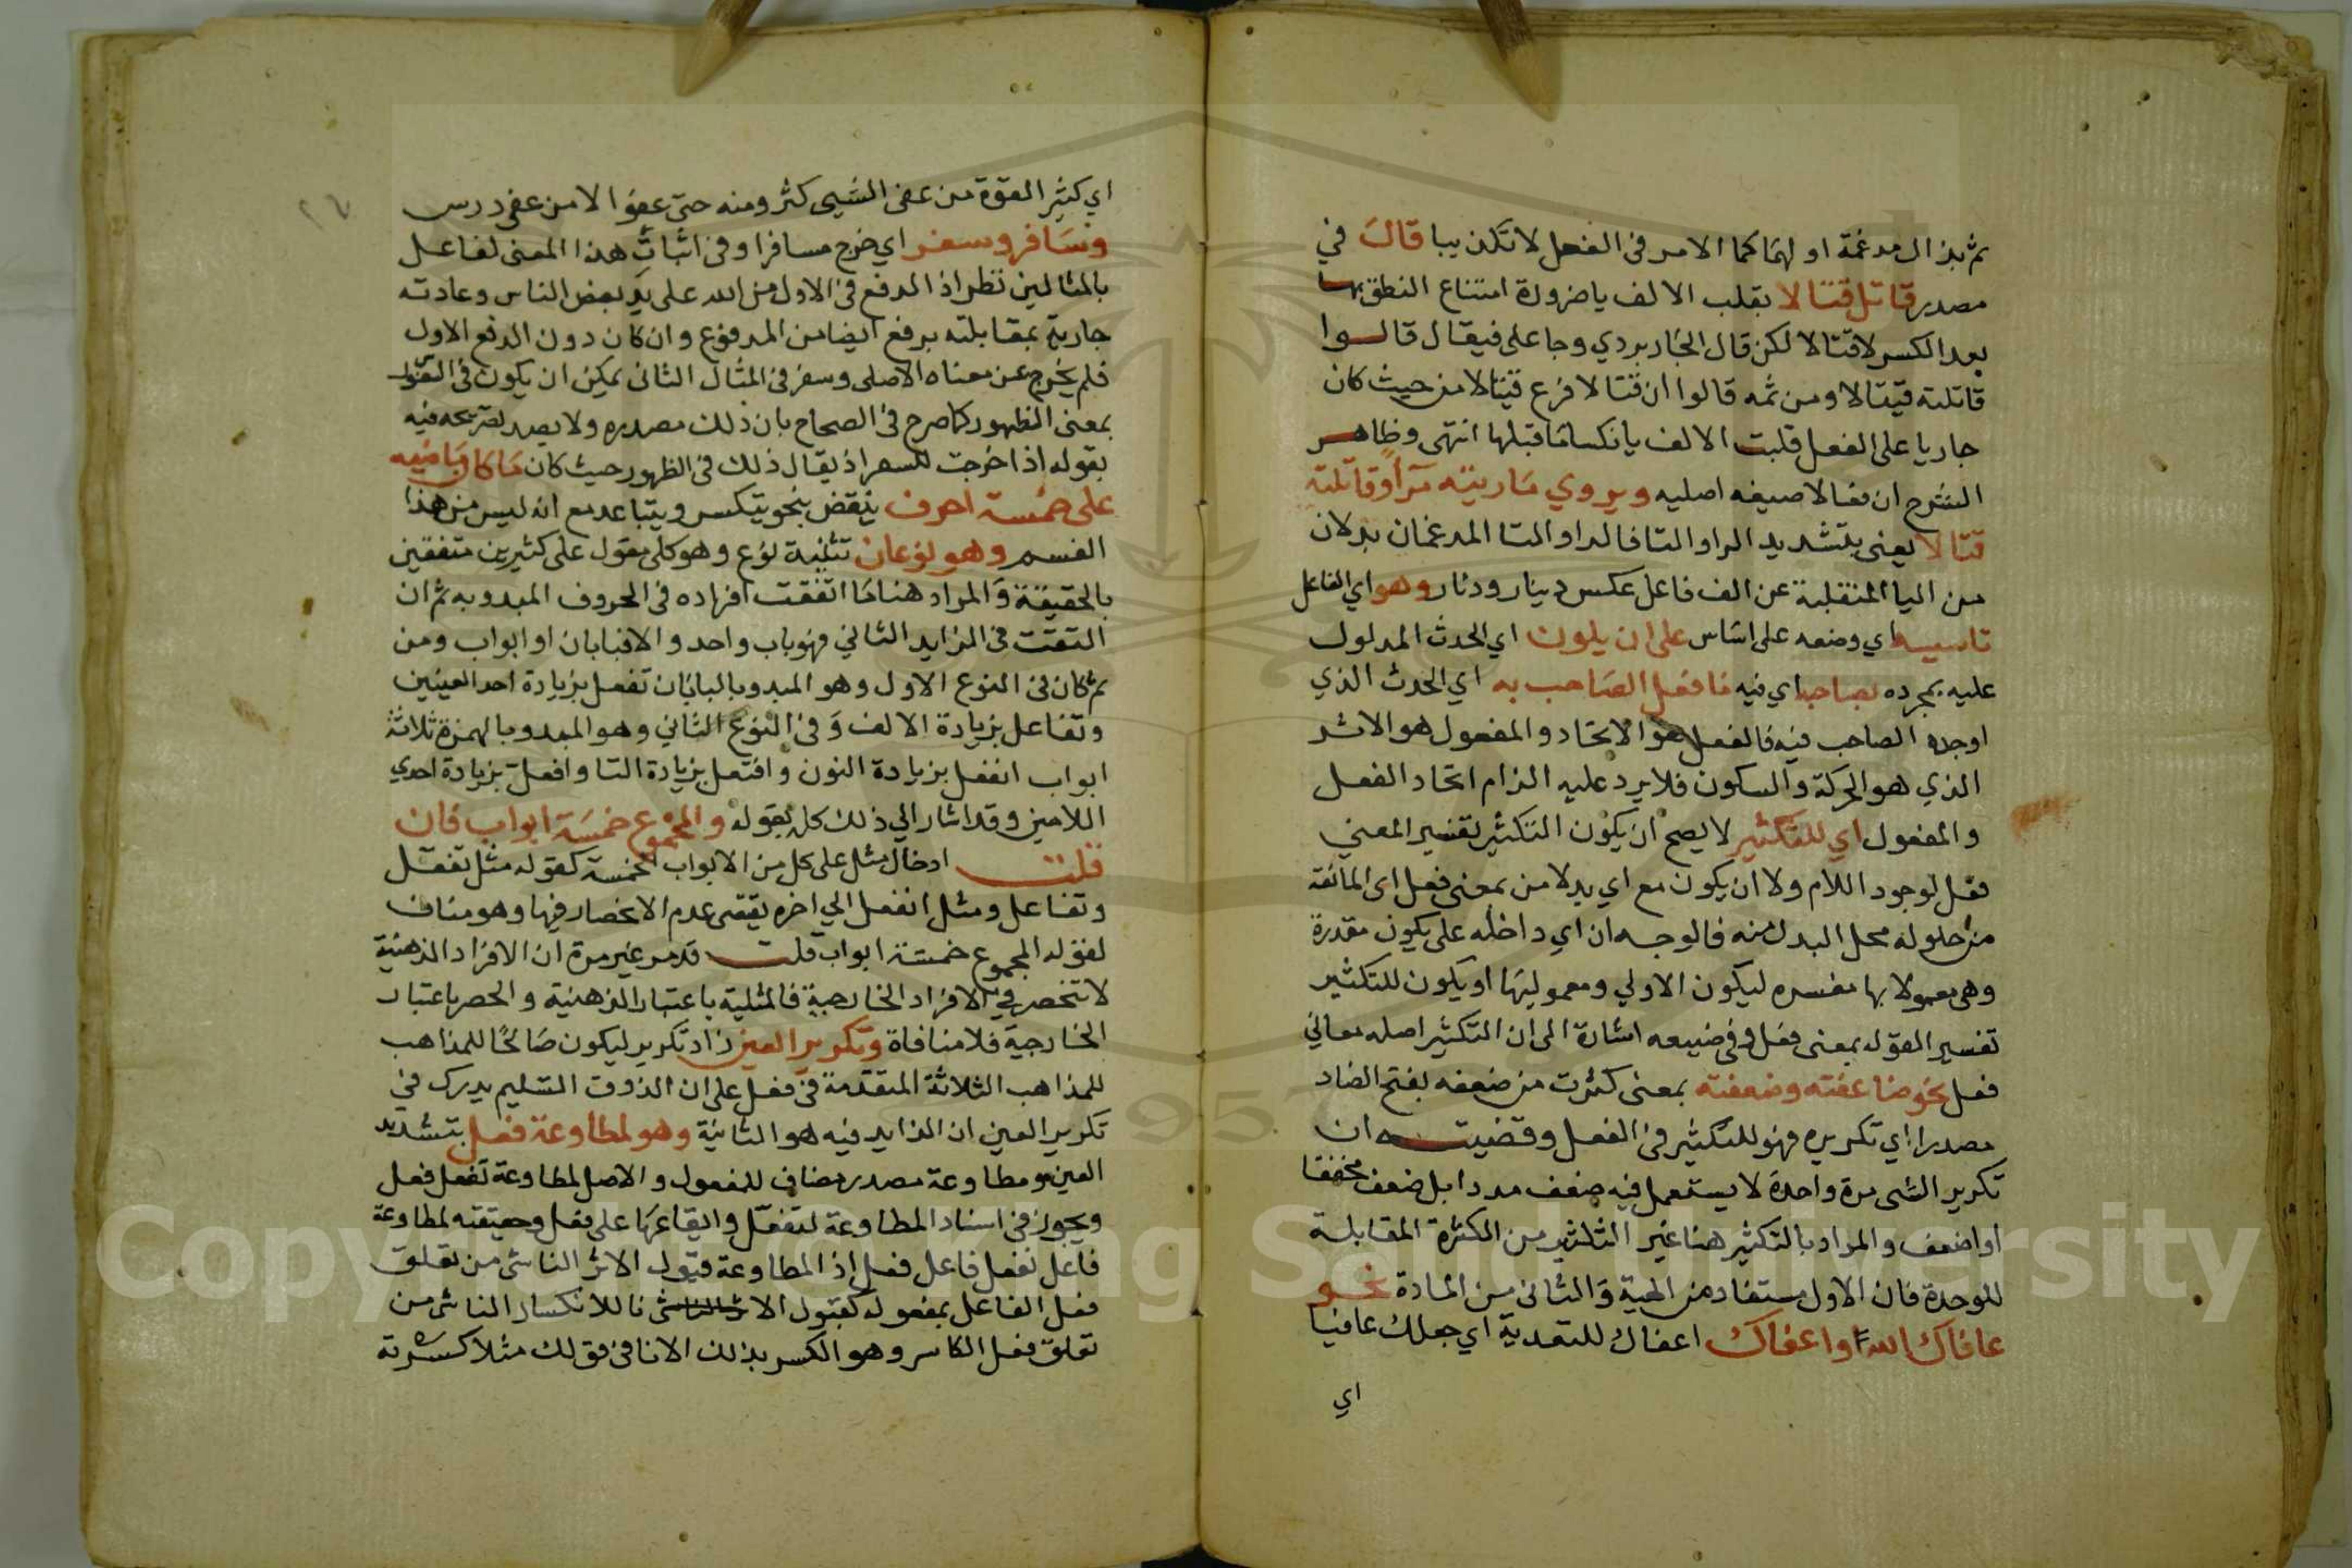 ثم بذال مدغمة اولهما كما الامر في الفعل لا تكذيبا قالت في
مصدر قاتل قتالا بقلب الالف يا ضرورة امتناع النطق بها
بعد الكسر لا قتالا لكن قال الجاربردي وجا على فيقال قالوا
قاتلته قيتالا ومن ثمه قالوا ان قتالا فرع قيتالا من حيث كان
جاريا على الفعل قلبت الالف يا نكسار ما قبلها انتهى وظاهر
الشرح ان فعالا صيغه اصليه ويروي ماريته مرا وقاتلته
قتالا يعني بتشديد الرا والتا فالرا والتا المدغمان بدلان
من اليا المنقلبة عن الف فاعل عكس دينار ودنار وهو اي الفاعل
تاسيسه اي وضعه على اساس على ان يلون اي الحدث المدلول
عليه بمجرده بصاحبه اي فيه ما فعل الصاحب به اي الحدث الذي
اوجده الصاحب فيه فالفعل هو الاتحاد والمفعول هو الاثر
الذي هو الحركة والسكون فلا يرد عليه الزام اتحاد الفعل
والمفعول اي للتكثير لا يصح ان يكون التكثير تفسير المعني
فعل لوجود اللام ولا ان يكون مع اي بدلا من بمعنى فعل اى المانعة
من حلوله محل البدل منه فالوجه ان اي داخله على يكون مقدرة
وهى معمولا بها مفسره ليكون الاولي ومعموليها او يكون للتكثير
تفسير القوله بمعنى فعل وفي ضيعه اشارة الى ان التكثير اصله معاني
فعل نحو ضاعفته وضعفته بمعنى كثرت من ضعفه بفتح الضاد
مصدرا اي تكريره فهو للتكثير في الفعل وقضيته ان
تكرير الشى مرة واحدة لا يستعمل فيه ضعف مددا بل ضعف مخففا
او اضعف والمراد بالتكثير هنا غير الثلاثير من الكثرة المقابلة
للوحدة فان الاول مستفاد من الهية والثانى من المادة نحو
عافاك الله واعفاك اعفاك للتعدية اي جعلك عافيا
اي
اي كثير القوة من عفى الشيى كثر ومنه حتى عفوا الا من عفى درس
وسافر وسفر اي خرج مسافرا وفي اثبات هذا المعنى لفاعل
بالمثالين نظر اذ الدفع في الاول من الله على يد بعض الناس وعادته
جارية بمقابلته برفع ايضا من المدفوع وان كان دون الدفع الاول
فلم يخرج عن معناه الاصلى وسفر في المثال الثانى يمكن ان يكون في القول
بمعنى الظهور كما صرح في الصحاح بان ذلك مصدره ولا يصدر لتصريحه فيه
بقوله اذا خرجت للسعر اذ يقال ذلك في الظهور حيث كان ما كان ماضيه
على خمسة احرف ينقض بنحو يتكسر ويتباعد مع انه ليس من هذا
القسم وهو نوعان تثنية نوع وهو كلى مقول على كثيرين متفقين
بالحقيقة والمراد هنا ما اتفقت افراده في الحروف المبدو به ثم ان
التقت في الزايد الثاني فهو باب واحد والا فبابان او ابواب ومن
ثم كان في النوع الاول وهو المبدو بالبابان تفعل بزيادة احد العينين
وتفاعل بزيادة الالف وفي النوع الثاني وهو المبدو بالهمزة ثلاثة
ابواب انفعل بزيادة النون وافتعل بزيادة التا وافعل بزيادة احدي
اللامين وقد اشار الي ذلك كله بقوله والمجموع خمسة ابواب فان
قلت ادخال مثل على كل من الابواب الخمسة كقوله مثل تفعل
وتفاعل ومثل انفعل الي اخره يقتضى عدم الانحصار فيها وهو مناف
لقوله المجموع خمسة ابواب قلت قد مر غير مرة ان الافراد الذهنية
لا تنحصر في الافراد الخارجية فالمثلية باعتبار الذهنية والحصر باعتبار
الخارجية فلا منافاة وتكرير العين زاد تكرير ليكون صالحا للمذاهب
للمذاهب الثلاثة المتقدمة في فعل على ان الذوق السليم يدرك في
تكرير العين ان الزايد فيه هو الثانية وهو لمطاوعة فعل بتشديد
العين ومطاوعة مصدر مضاف للمفعول والاصل لمطاوعة تفعل فعل
ويجوز في اسناد المطاوعة لتفعل وايقاعها على فعل وحقيقته لمطاوعة
فاعل تفعل فاعل فعل اذ المطاوعة قبول الاثر الناشى من تعلق
فعل الفاعل بمفعوله كقبول الا نا للانكسار الناشى من
تعلق فعل الكاسر وهو الكسر بذلك الانا في قولك مثلا كسرته